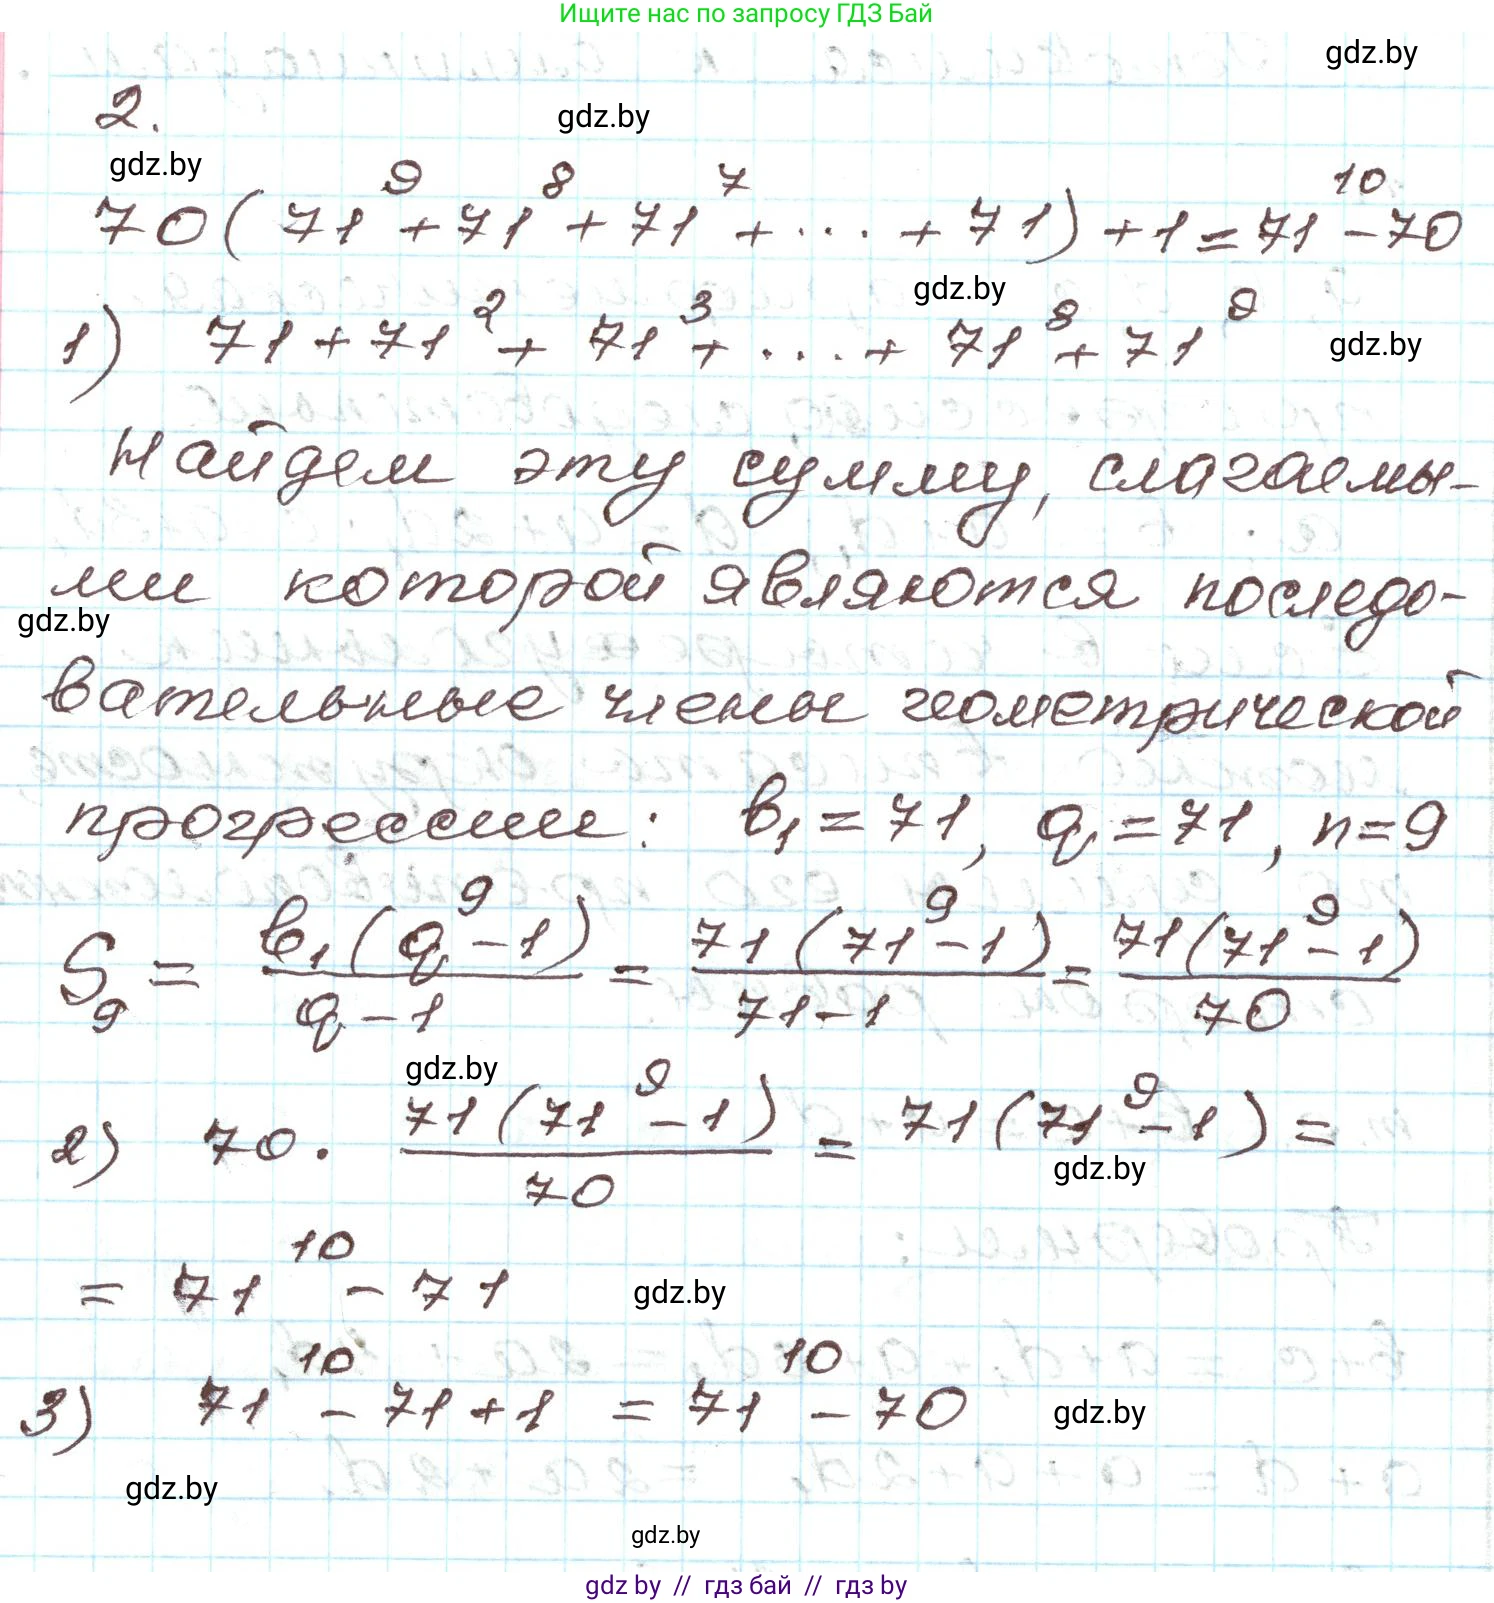 Ищите нас по запросу ГДЗ Бай
gdz.by
2.
gdz.by
gdz.by
70(71⁹+71⁸+71⁷+...+71)+1=71¹⁰-70
gdz.by
1) 71+71²+71³+...+71⁸+71⁹
gdz.by
Найдем эту сумму, слагаемы-
ми которой являются последо-
gdz.by
вательные члены геометрической
прогрессии: b₁=71, q=71, n=9
S₉ = b₁(q⁹-1)/(q-1) = 71(71⁹-1)/(71-1) = 71(71⁹-1)/70
gdz.by
2) 70 · 71(71⁹-1)/70 = 71(71⁹-1) =
gdz.by
= 71¹⁰ - 71
gdz.by
3) 71¹⁰ - 71+1 = 71¹⁰ - 70
gdz.by
gdz.by
gdz.by
gdz by // гдз бай // гдз by